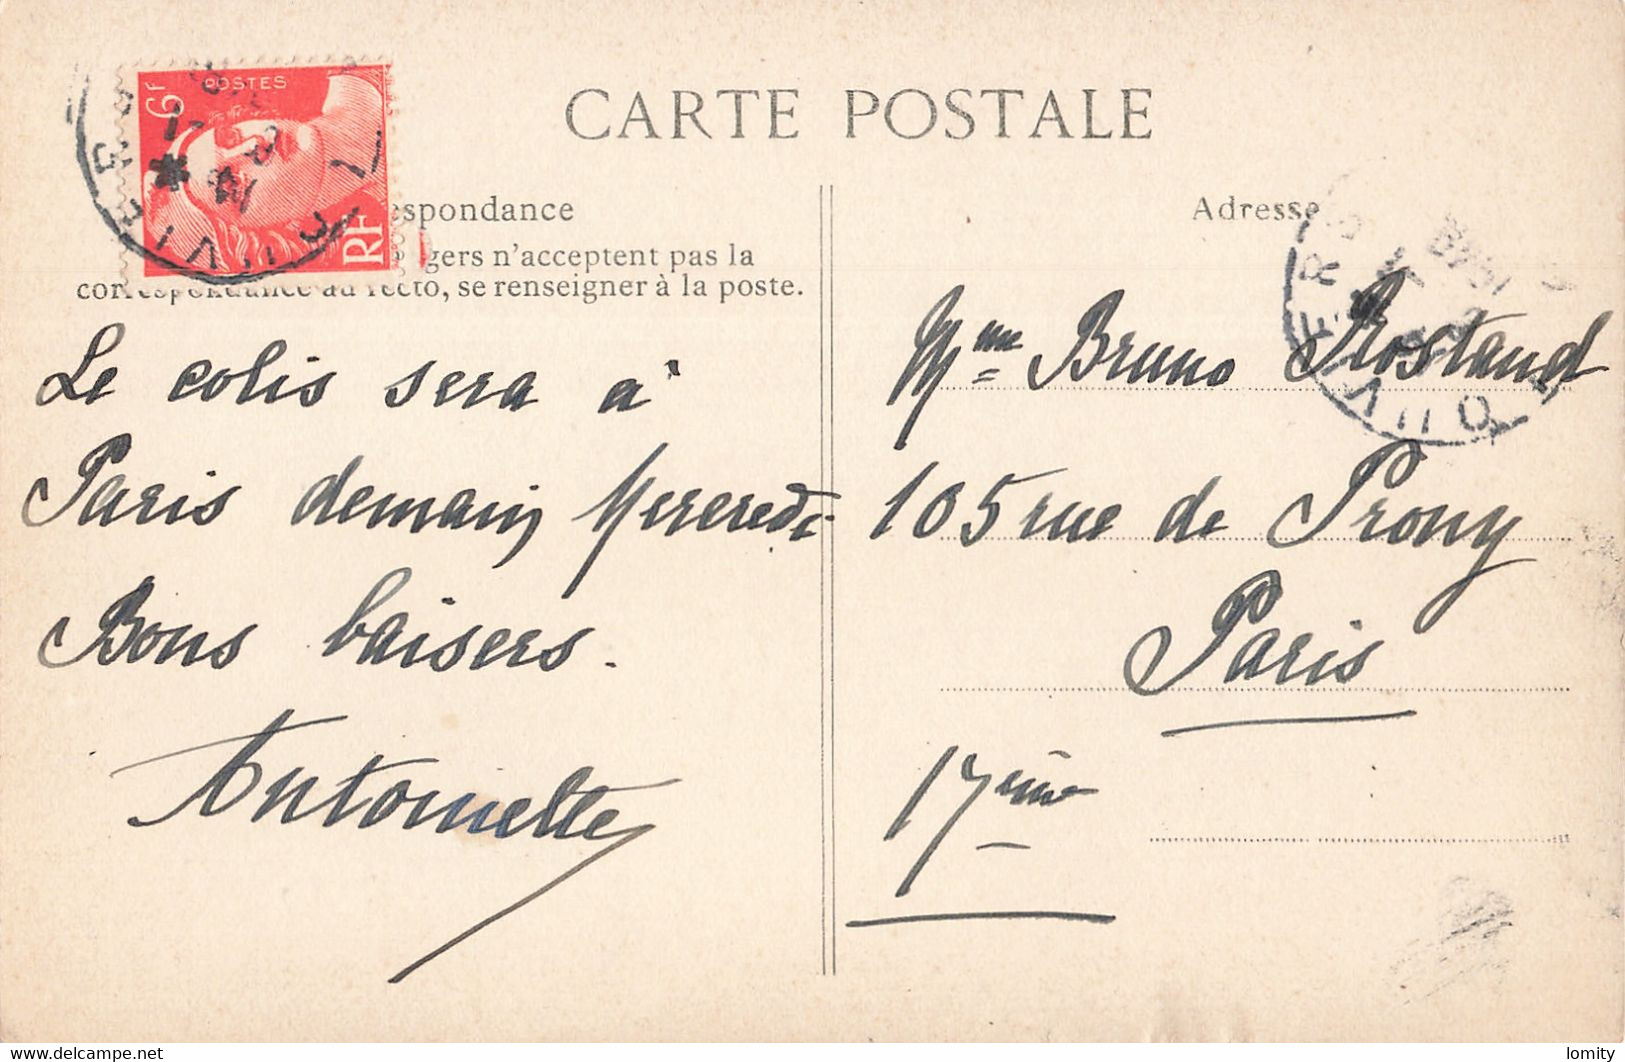 CARTE POSTALE
POSTES
6F
RF
espondance
gers n'acceptent pas la
correspondance au recto, se renseigner à la poste.
Le colis sera à
Paris demain Mercredi
Bons baisers.
Antoinette
Adresse
Mme Bruno Rostand
105 rue de Prony
Paris
17ème
lomity